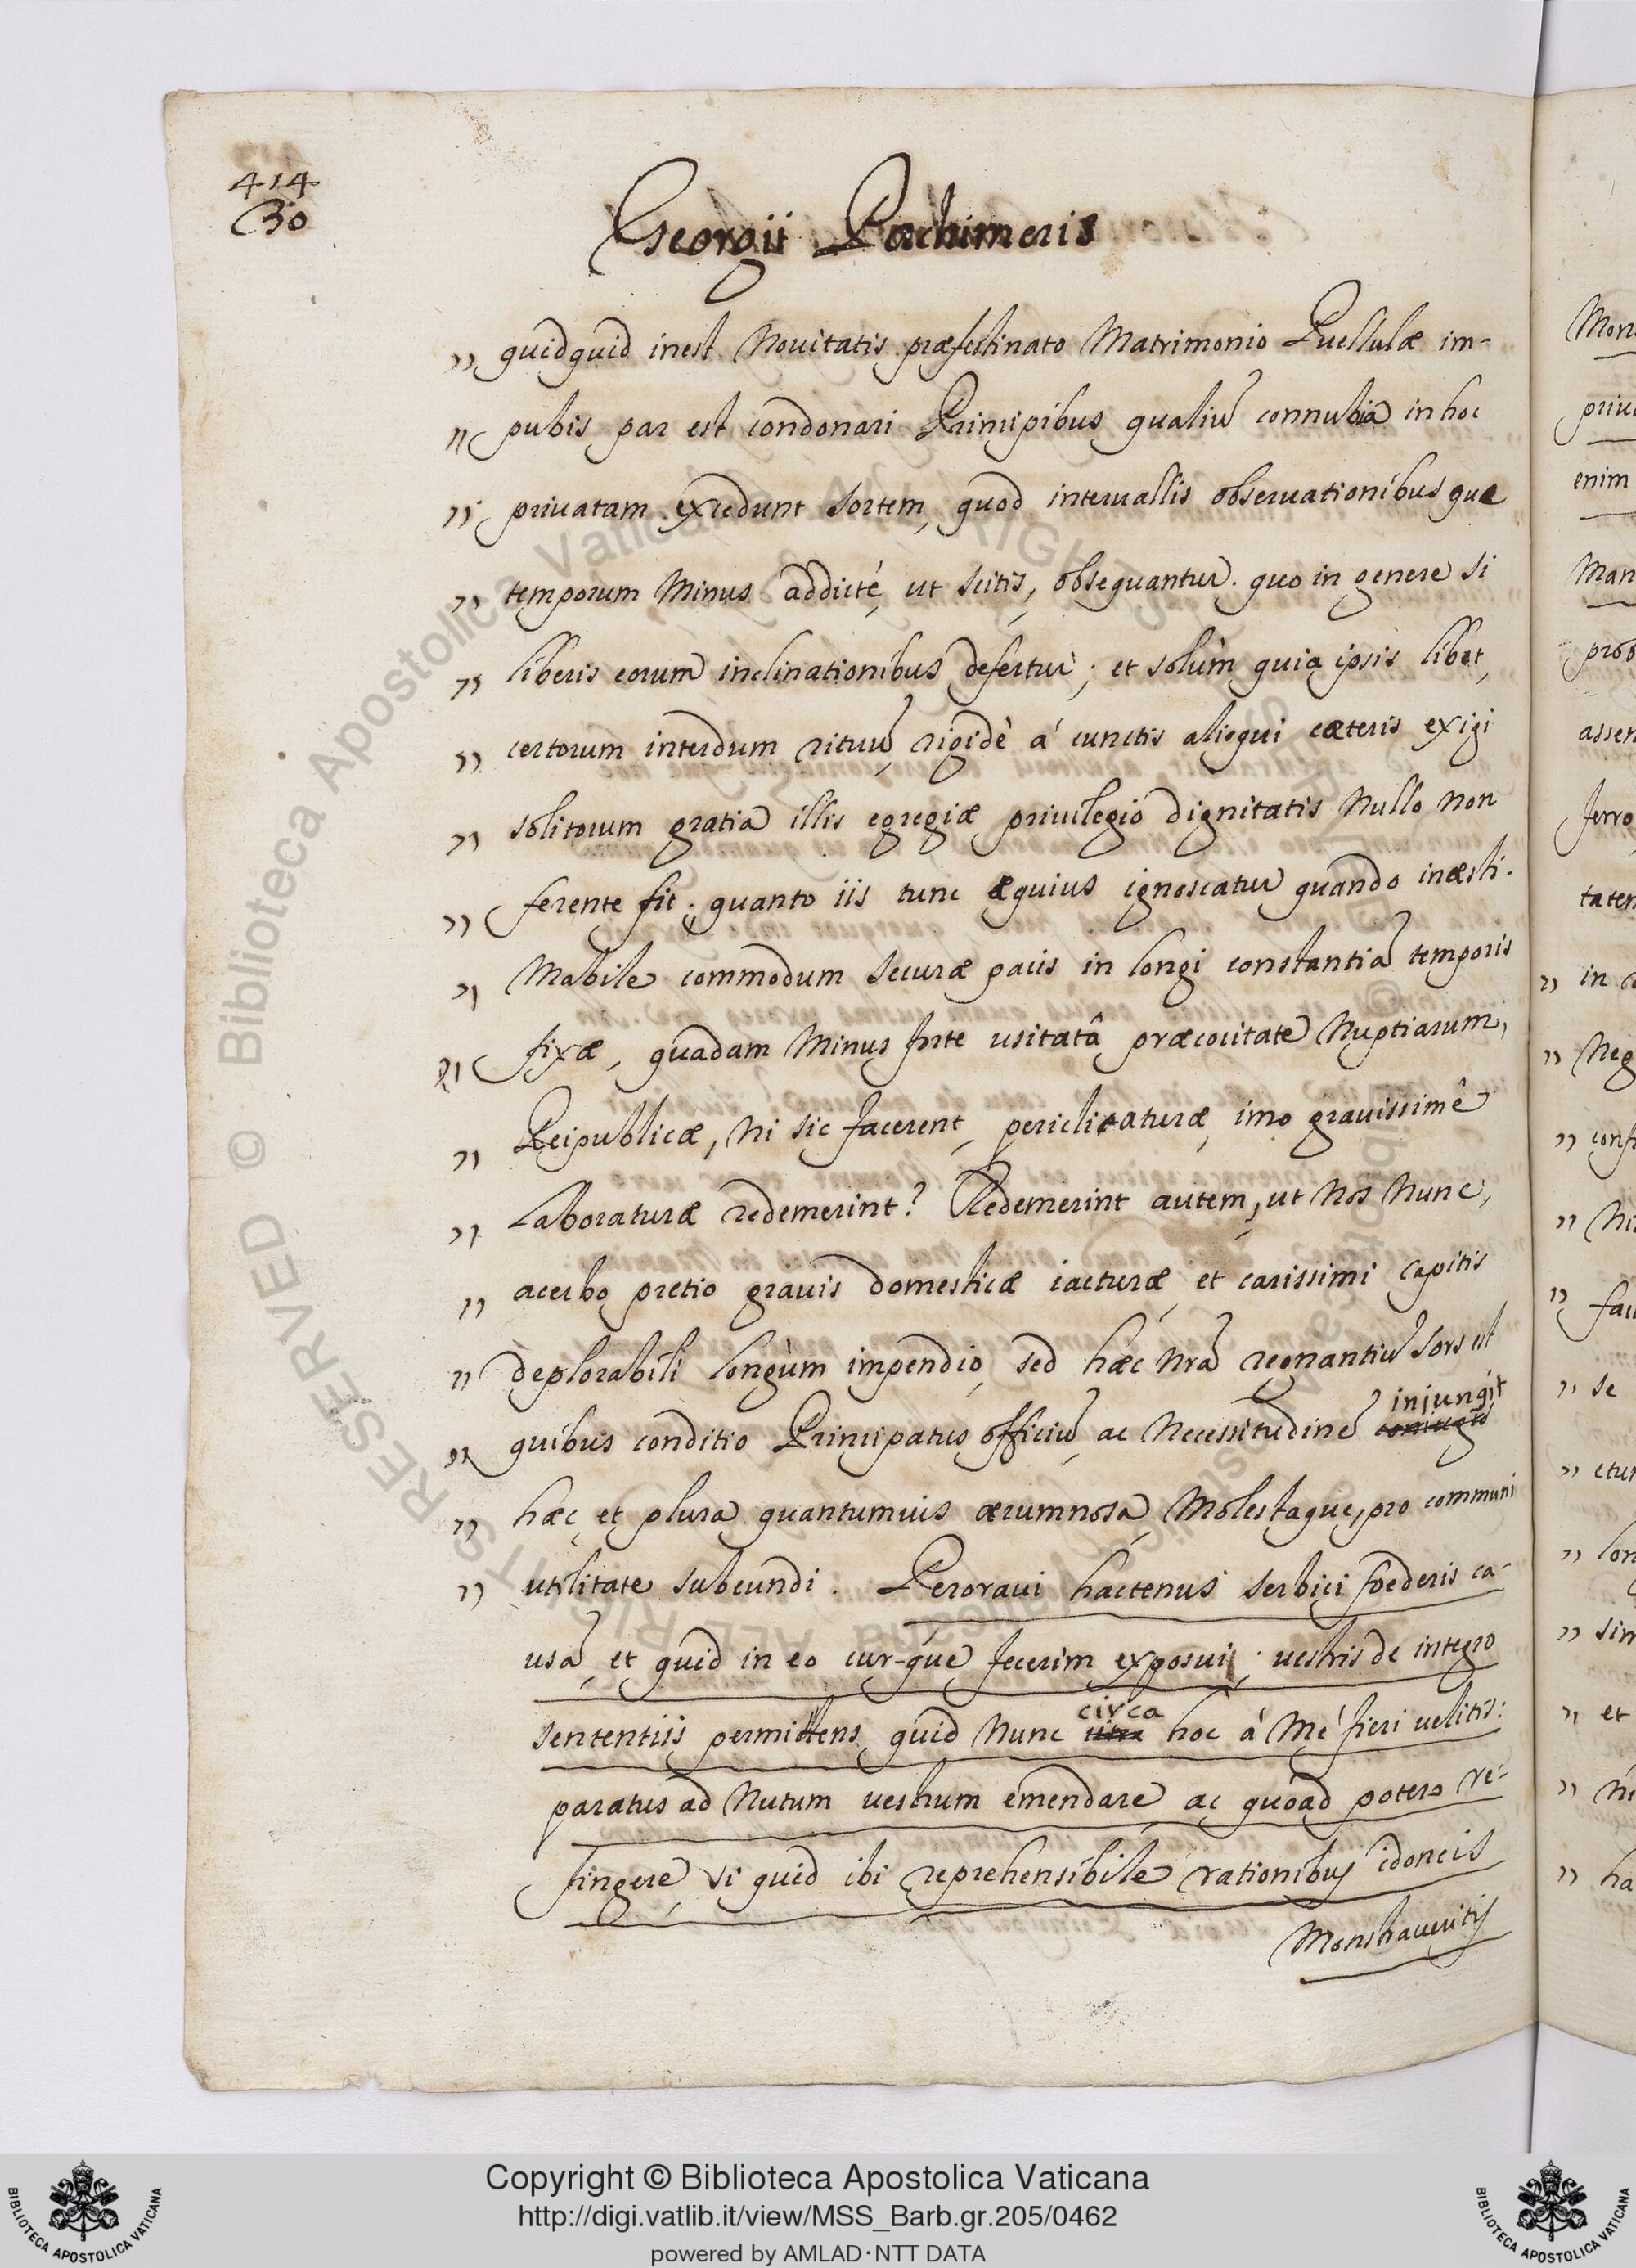 414
30
Georgii Pachimeris
„ quidquid inest Nouitatis præfestinato Matrimonio Puellulæ im-
„ pubis par est condonari Principibus qualiū connubia in hoc
„ priuatam excedunt sortem, quod interuallis obseruationibusque
„ temporum Minus addicté, ut scitis, obsequantur. quo in genere si
„ liberis eorum inclinationibus defertur; et solùm quia ipsis libet,
„ certorum interdum rituū, rigidè á cunctis alioqui cæteris exigi
„ solitorum gratia illis egregiæ priuilegio dignitatis Nullo non
„ ferente fit; quanto iis tunc æquius ignoscatur quando inæsti-
„ Mabile commodum securæ pacis in longi constantiā temporis
„ fixæ, quadam Minus forte usitatâ præcocitate Nuptiarum,
„ Reipublicæ, Ni sic facerent, periclitaturæ, imo grauissimê
„ Laboraturæ redemerint? Redemerint autem, ut Nos Nunc,
„ acerbo pretio grauis domesticæ iacturæ, et carissimi capitis
„ deplorabili longùm impendio, sed hæc nrā regnantiū sors est
injungit
„ quibus conditio Principatus officiū, ac Necessitudinē coniugis
„ hæc et plura quantumuis ærumnosa, Molestaque, pro communi
„ utilitate subeundi. Peroraui hactenus serbici fœderis ca-
usā, et quid in eo cur-que fecerim exposui; uestris de integro
circa
sententiis permittens, quid Nunc citra hoc á Mé fieri uelitis:
paratus ad Nutum uestrum emendare, ac quoad potero re-
fingere, si quid ibi reprehensibile rationibus idoneis
Monstraueritis
Mon
priu
enim
Man
prob
asser
ferro
taten
„ in c
„ Neg
„ conf
„ Ni
„ fac
„ se
„ ctur
„ lon
„ sim
„ et
„ ni
„ ha
© Biblioteca Apostolica Vaticana ALL RIGHTS RESERVED © Biblioteca Apostolica Vaticana ALL RIGHTS RESERVED
BIBLIOTECA APOSTOLICA VATICANA
Copyright © Biblioteca Apostolica Vaticana
http://digi.vatlib.it/view/MSS_Barb.gr.205/0462
powered by AMLAD·NTT DATA
BIBLIOTECA APOSTOLICA VATICANA